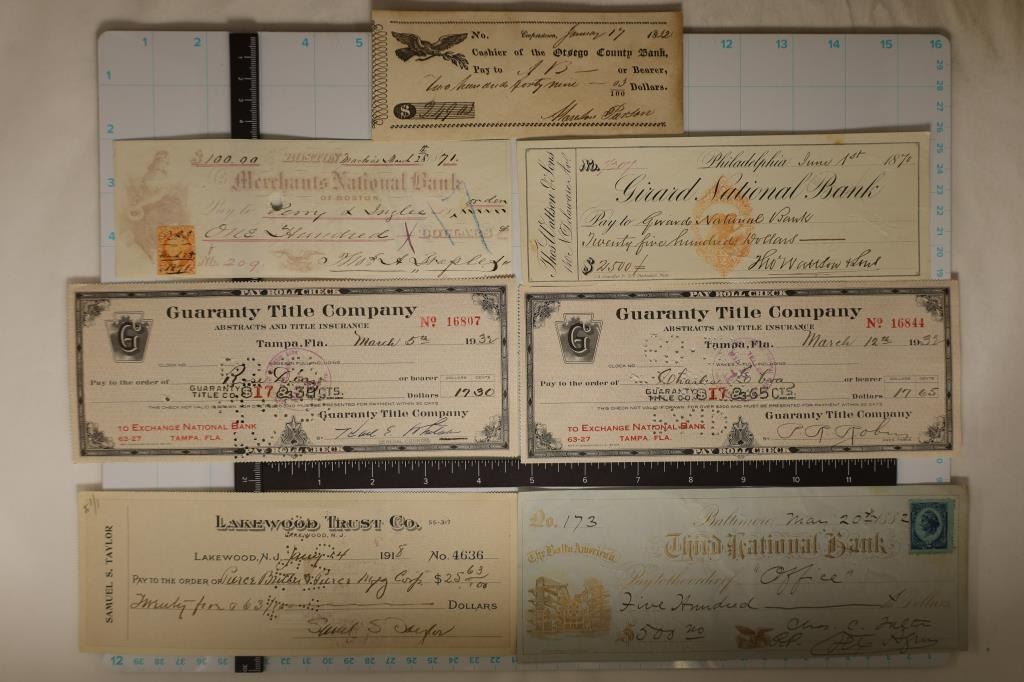 No. Cooperstown, January 17 1832
Cashier of the Otsego County Bank,
Pay to A B — or Bearer,
Two hundred forty nine — 03/100 Dollars.
$
$100.00 March 28th 1871.
Merchants National Bank
OF BOSTON.
Pay to Perry or order
One Hundred DOLLARS
No. 209
Thos Wattson & Sons
No. 1307 Philadelphia June 1st 1870
Girard National Bank
Pay to Girard National Bank
Twenty five hundred Dollars —
$2,500 Thos Wattson & Sons
PAY ROLL CHECK
Guaranty Title Company
ABSTRACTS AND TITLE INSURANCE
No 16807
G
Tampa, Fla. March 5th 1932
CLOCK NO
Pay to the order of or bearer DOLLARS CENTS
GUARANTY TITLE CO. $17 CTS. Dollars 17 30
THIS CHECK NOT VALID IF DRAWN FOR OVER $200 AND MUST BE PRESENTED FOR PAYMENT WITHIN 30 DAYS
Guaranty Title Company
TO EXCHANGE NATIONAL BANK
63-27 TAMPA, FLA.
BY
PAY ROLL CHECK
PAY ROLL CHECK
Guaranty Title Company
ABSTRACTS AND TITLE INSURANCE
No 16844
G
Tampa, Fla. March 12th 1932
CLOCK NO
Pay to the order of Charlie or bearer DOLLARS CENTS
GUARANTY TITLE CO. $17 65 CTS. Dollars 17 65
THIS CHECK NOT VALID IF DRAWN FOR OVER $200 AND MUST BE PRESENTED FOR PAYMENT WITHIN 30 DAYS
Guaranty Title Company
TO EXCHANGE NATIONAL BANK
63-27 TAMPA, FLA.
BY
PAY ROLL CHECK
SAMUEL S. TAYLOR
LAKEWOOD TRUST CO. 55-317
LAKEWOOD, N.J.
LAKEWOOD, N.J. 24 1918 No. 4636
PAY TO THE ORDER OF Pierce Butler & Pierce Mfg Corp. $25 63/100
Twenty five & 63/100 DOLLARS
Saml S Taylor
No. 173 Baltimore, Mar 20th 1882
Third National Bank
Pay to the order of "Office"
Five Hundred — Dollars
$500 00 Chas. C.